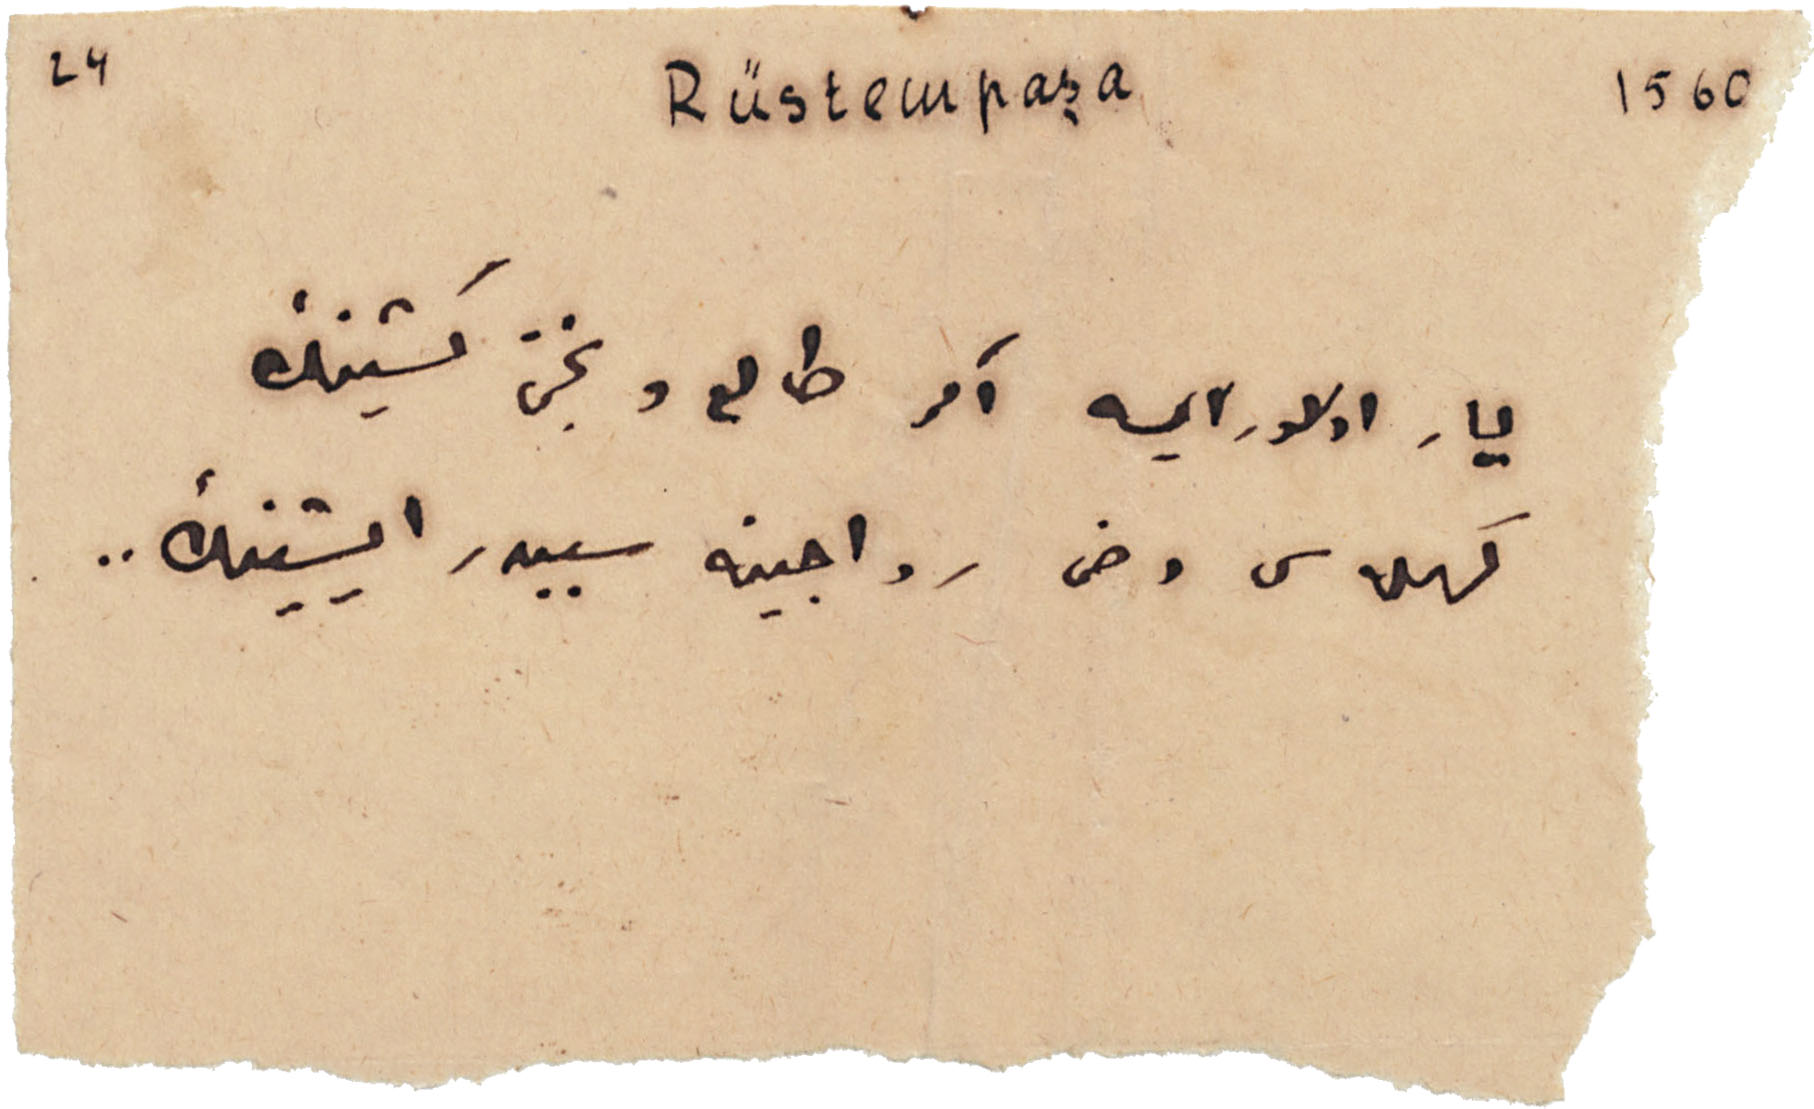 24 Rüstempaşa 1560
یار اولور ایسه اگر طالع و بختی کشینڭ
کهله سی دخی رواجینه سببدر ایشینڭ..